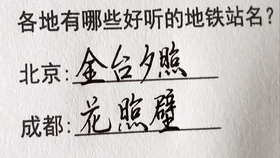 各地有哪些好听的地铁站名?
北京:金台夕照
成都:花照壁